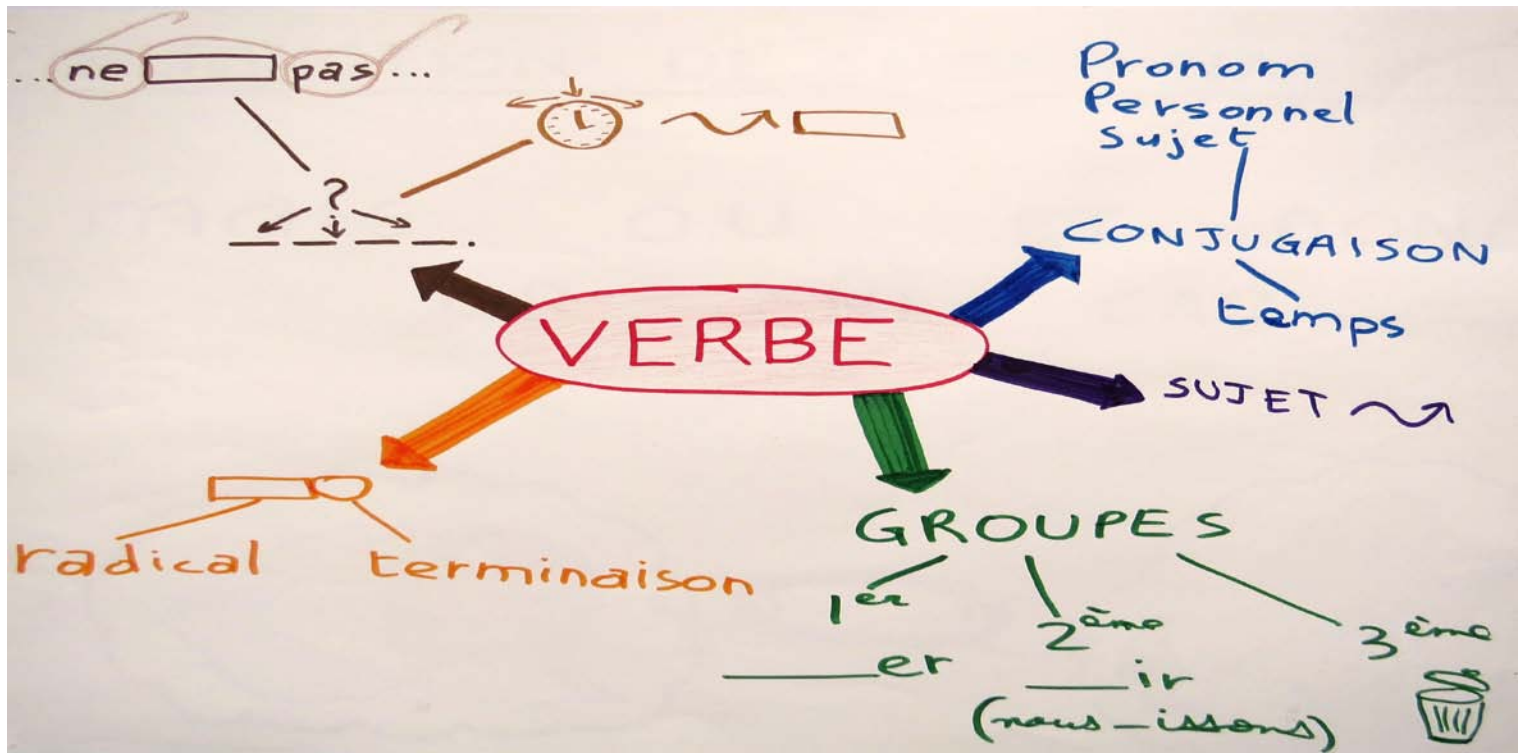 ... ne pas ...
?
VERBE
Pronom
Personnel
Sujet
CONJUGAISON
temps
SUJET
GROUPES
1er
____er
2ème
___ir
(nous _issons)
3ème
radical
terminaison